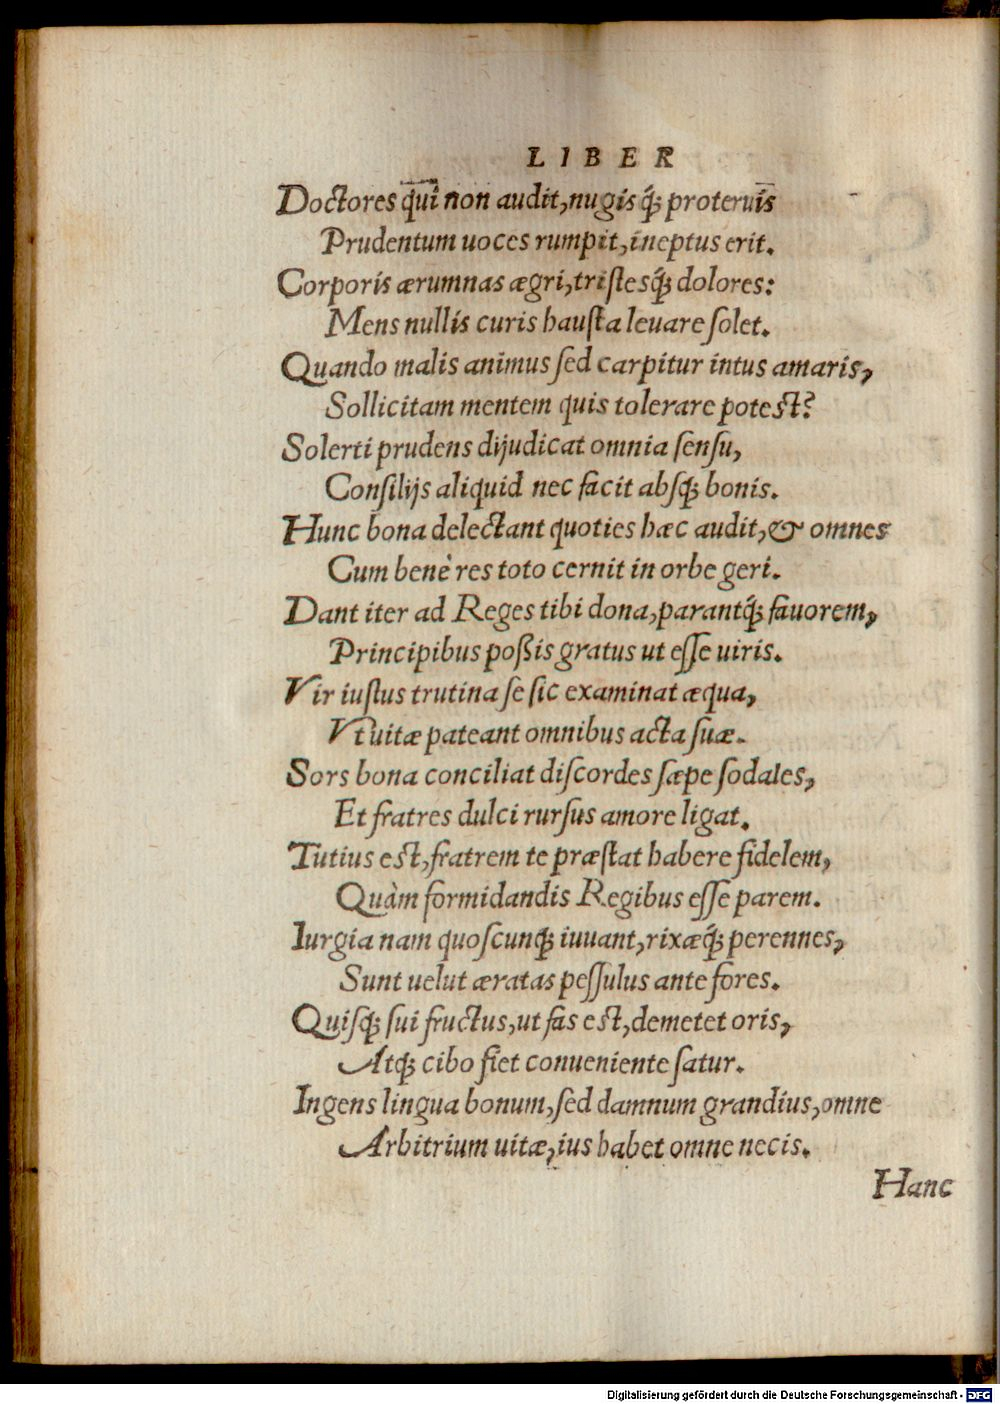 LIBER
Doctores qui non audit, nugisq́; proteruis
Prudentum uoces rumpit, ineptus erit.
Corporis ærumnas ægri, tristesq́; dolores:
Mens nullis curis hausta leuare solet.
Quando malis animus sed carpitur intus amaris,
Sollicitam mentem quis tolerare potest?
Solerti prudens dijudicat omnia sensu,
Consilijs aliquid nec facit absq́; bonis.
Hunc bona delectant quoties hæc audit, & omnes
Cum benè res toto cernit in orbe geri.
Dant iter ad Reges tibi dona, parantq́; fauorem,
Principibus poßis gratus ut esse uiris.
Vir iustus trutina se sic examinat æqua,
Vt uitæ pateant omnibus acta suæ.
Sors bona conciliat discordes sæpe sodales,
Et fratres dulci rursus amore ligat.
Tutius est, fratrem te præstat habere fidelem,
Quàm formidandis Regibus esse parem.
Iurgia nam quoscunq́; iuuant, rixæq́; perennes,
Sunt uelut æratas pessulus ante fores.
Quisq́; sui fructus, ut fas est, demetet oris,
Atq́; cibo fiet conueniente satur.
Ingens lingua bonum, sed damnum grandius, omne
Arbitrium uitæ, ius habet omne necis.
Hanc
Digitalisierung gefördert durch die Deutsche Forschungsgemeinschaft - DFG